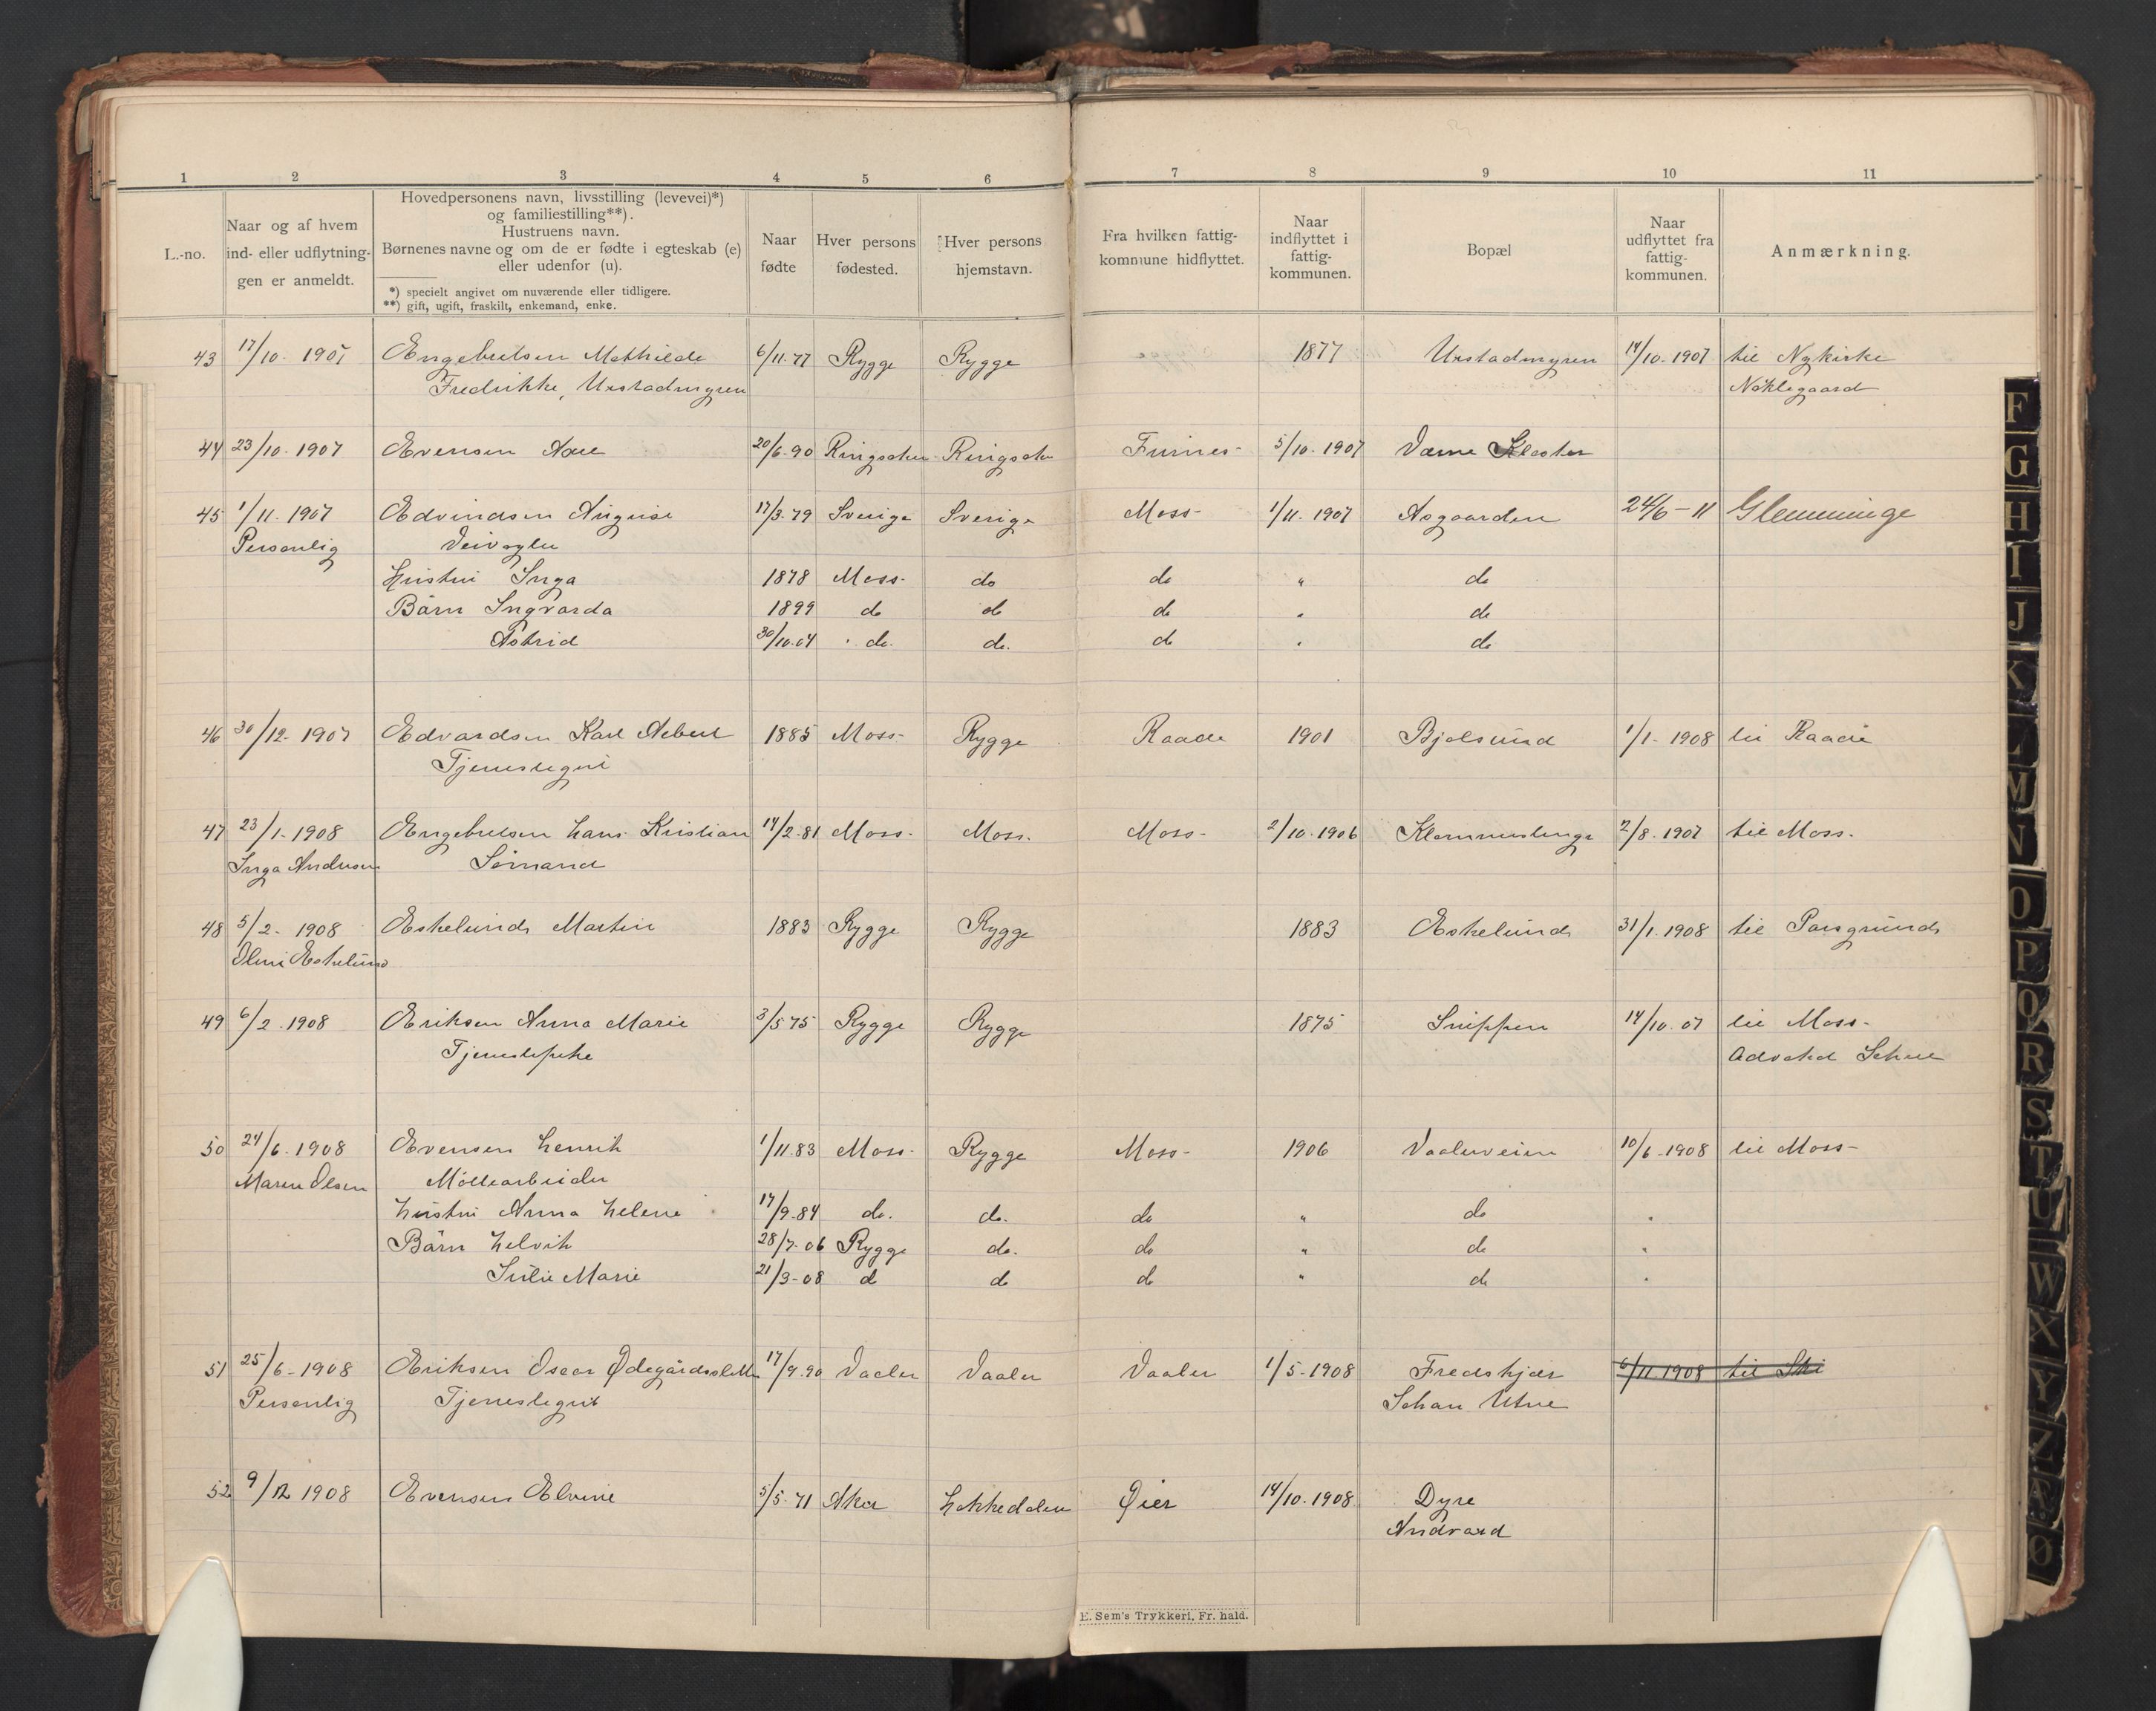 1 2 3 4 5 6 7 8 9 10 11
L.-no.
Naar og af hvem
ind- eller udflytnin-
gen er anmeldt.
Hovedpersonens navn, livsstilling (levevei)*)
og familiestilling**).
Hustruens navn.
Børnenes navne og om de er fødte i egteskab (e)
eller udenfor (u).
*) specielt angivet om nuværende eller tidligere.
**) gift, ugift, fraskilt, enkemand, enke.
Naar
fødte
Hver persons
fødested.
Hver persons
hjemstavn.
Fra hvilken fattig-
kommune hidflyttet.
Naar
indflyttet i
fattig-
kommunen.
Bopæl
Naar
udflyttet fra
fattig-
kommunen.
Anmærkning.
43 17/10 - 1907 Engebretsen Mathilde 6/11-77 Rygge Rygge 1877 Urstadmyren 14/10-1907 til Nykirke
Fredrikke, Urstadmyren Nøklegaard
44 23/10-1907 Evensen 20/6-90 Ringsaker Ringsaker Furnes- 5/10-1907 Værne Kloster
45 1/11-1907 Edvindsen August 17/3-79 Sverige Sverige Moss- 1/11-1907 Asgaarden 24/6-11 Glemminge
Personlig Veivogter
Hustru Inga 1878 Moss- do do " do
Børn Ingvarda 1899 do do do " do
Astrid 30/10-04 do. do. do " do
46 30/12-1907 Edvardsen Karl Albert 1885 Moss- Rygge Raade 1901 Bjølsund 1/1-1908 til Raade
Tjenestegut
47 23/1-1908 Engebretsen Hans Kristian 14/2-81 Moss- Moss. Moss- 2/10-1906 2/8-1907 til Moss.
Inga Andresen Sømand
48 5/2-1908 Eskelund Martin 1883 Rygge Rygge 1883 Eskelund 31/1-1908 til Porsgrund
Eskelund
49 6/2-1908 Eriksen Anna Marie 3/5 75 Rygge Rygge 1875 Snippen 14/10-07 til Moss-
Tjenestepike Advokat
50 24/6-1908 Evensen Henrik 1/11 83 Moss- Rygge Moss- 1906 Vaalerveien 10/6-1908 til Moss-
Maren Olsen Møllearbeider
Hustru Anna Helene 17/9-84 do. do. do " do "
Børn Helvik 28/7-06 Rygge do. do " do "
Julie Marie 21/3-08 d do do " do "
51 25/6-1908 Eriksen Oscar Ødegårdssletten 17/9-90 Vaaler Vaaler Vaaler 1/5-1908 Fredskjær 6/11 1908 til Ski
Personlig Tjenestegut Johan Utne
52 9/12 1908 Evensen Elvine 5/5-71 Aker Hakkedalen Øier 14/10-1908 Dyre
Andvord
E. Sem's Trykkeri, Fr. hald.
F
G
H
I
J
K
L
M
N
O
P
Q
R
S
T
U
W
X
Y
Z
Æ
Ø